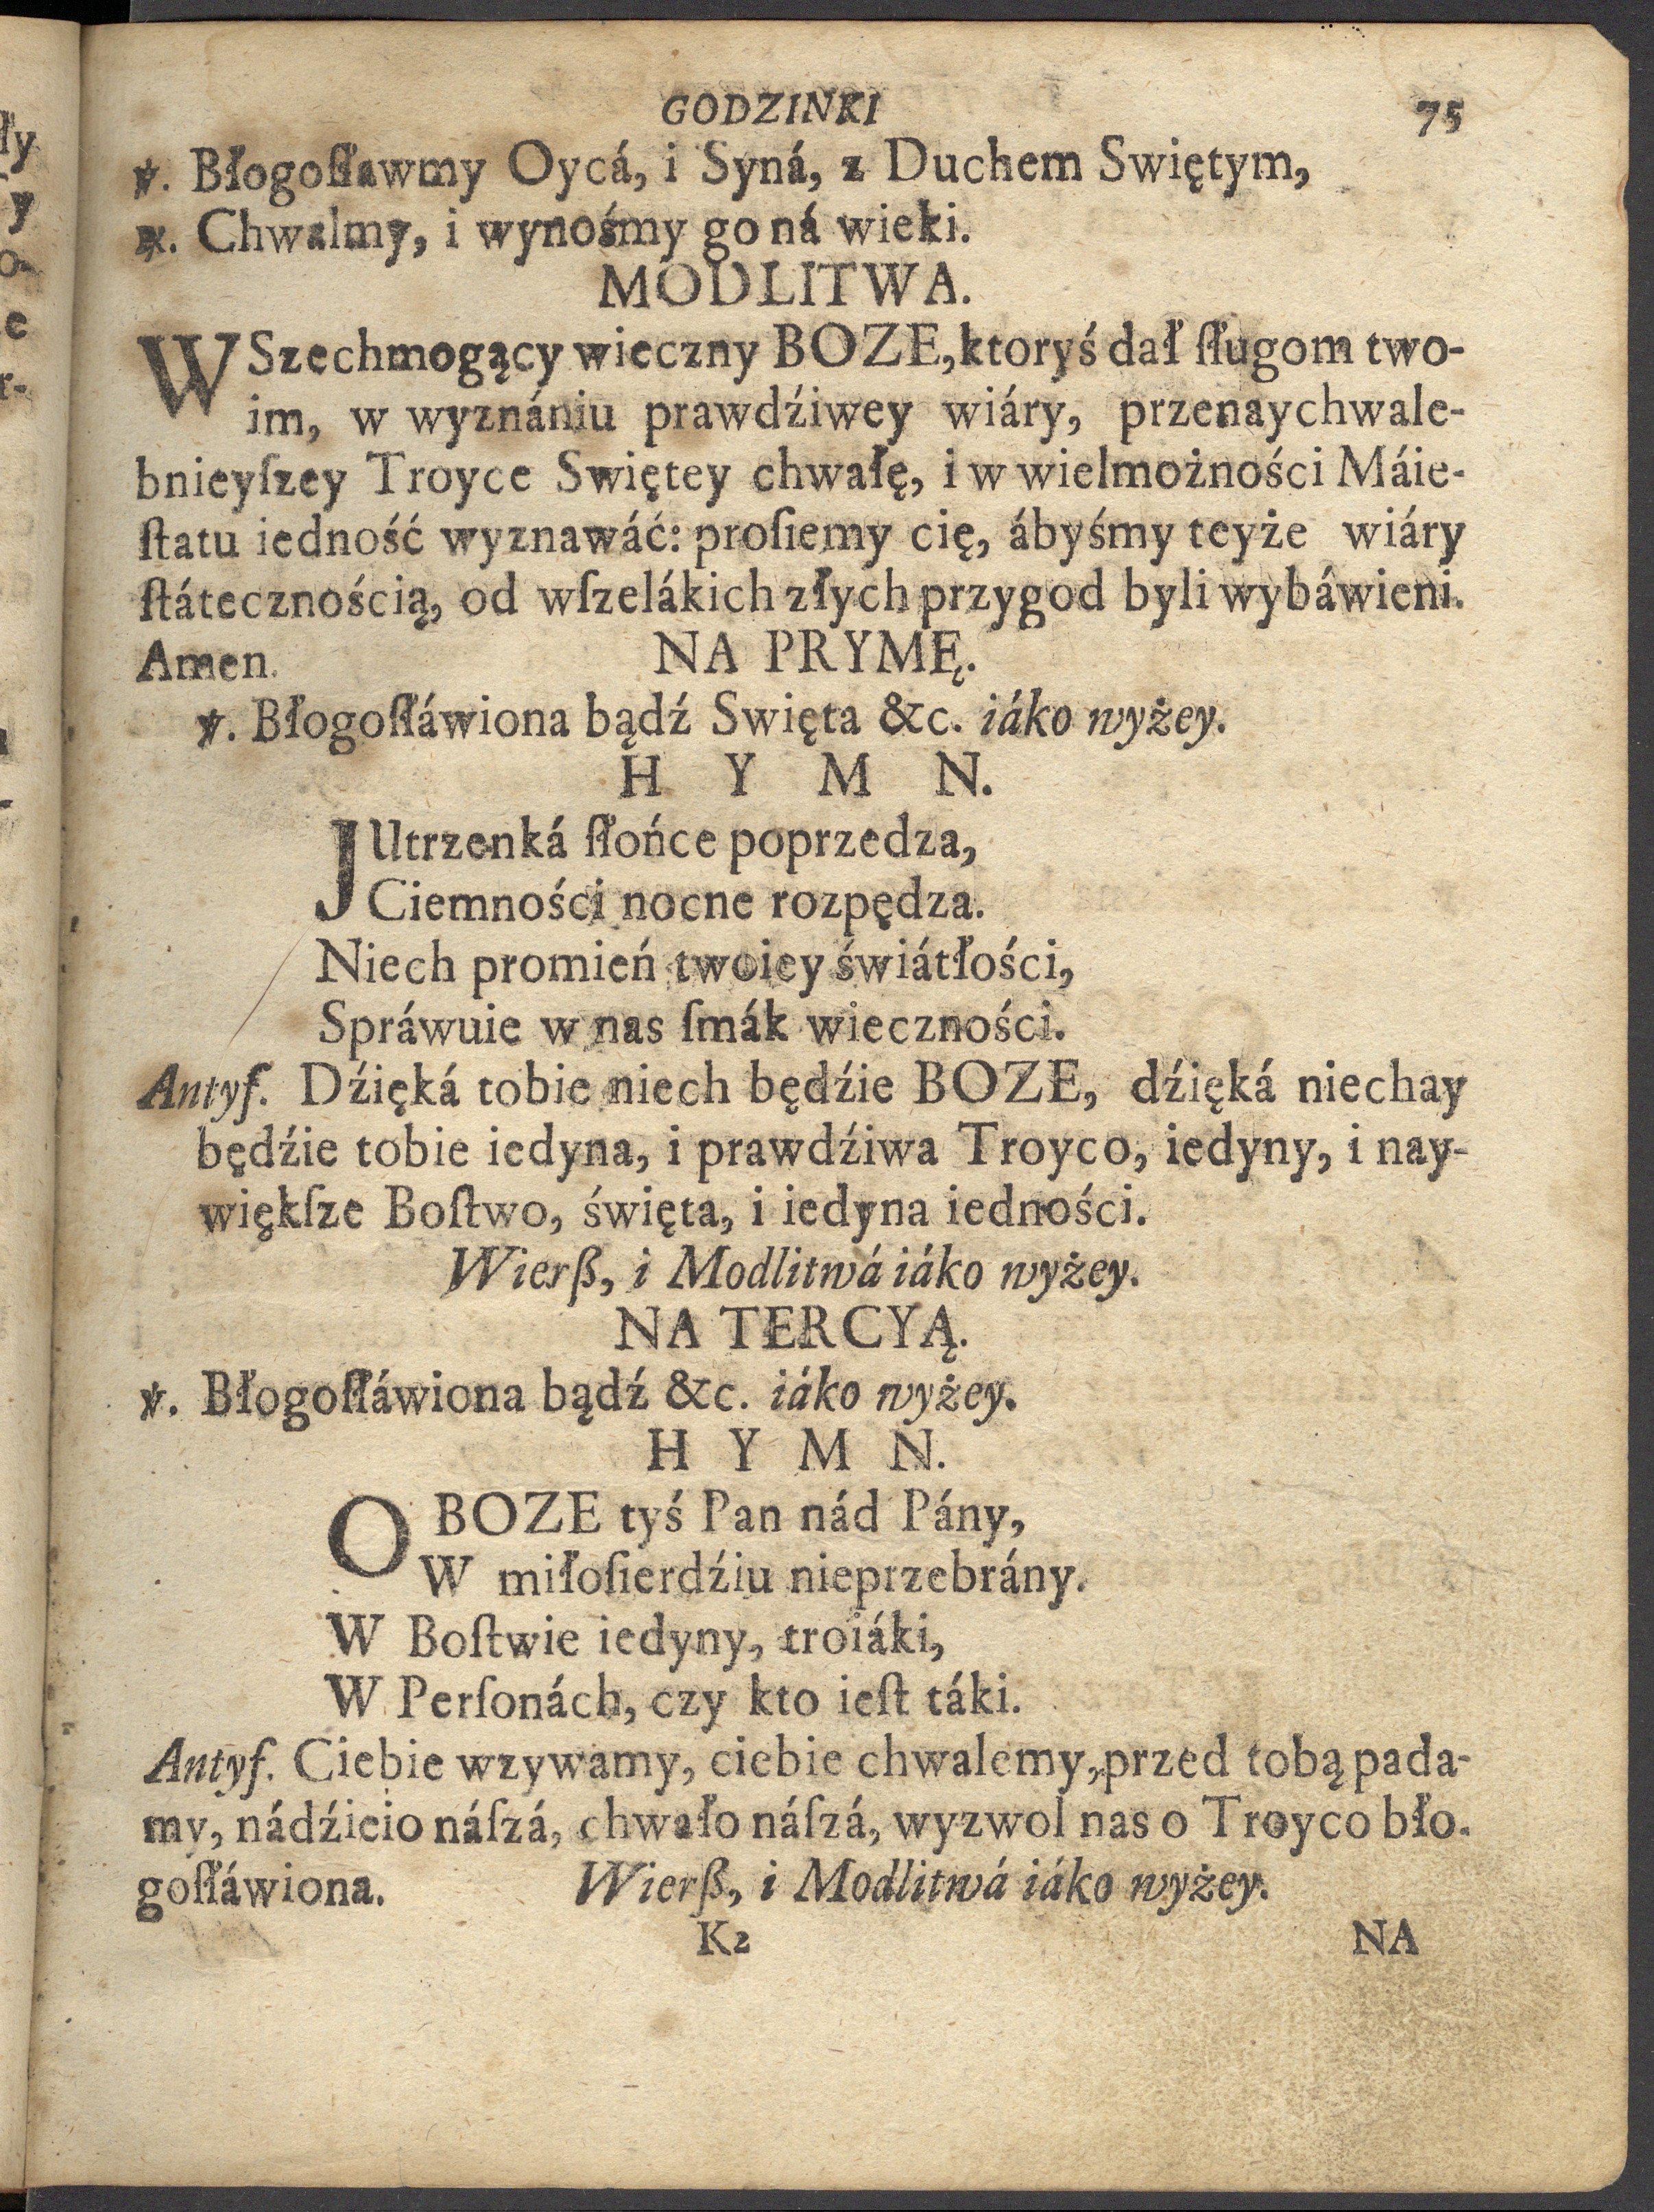 GODZINKI 75
℣. Błogoſławmy Oycá, i Syná, z Duchem Swiętym,
℟. Chwalmy, i wynośmy go ná wieki.
MODLITWA.
WSzechmogący wieczny BOZE, ktoryś dał ſługom two-
im, w wyznániu prawdźiwey wiáry, przenaychwale-
bnieyſzey Troyce Swiętey chwałę, i w wielmożności Máie-
ſtatu iedność wyznawáć: proſiemy cię, ábyśmy teyże wiáry
ſtátecznością, od wſzelákich złych przygod byli wybáwieni.
Amen. NA PRYMĘ.
℣. Błogoſłáwiona bądź Swięta &c. iáko wyżey.
H Y M N.
JUtrzenká ſłońce poprzedza,
Ciemności nocne rozpędza.
Niech promień twoiey świátłości,
Spráwuie w nas ſmák wieczności.
Antyf. Dźięká tobie niech będźie BOZE, dźięká niechay
będźie tobie iedyna, i prawdźiwa Troyco, iedyny, i nay-
więkſze Boſtwo, święta, i iedyna iedności.
Wierß, i Modlitwá iáko wyżey.
NA TERCYĄ.
℣. Błogoſłáwiona bądź &c. iáko wyżey.
H Y M N.
O BOZE tyś Pan nád Pány,
W miłoſierdźiu nieprzebrány.
W Boſtwie iedyny, troiáki,
W Perſonách, czy kto ieſt táki.
Antyf. Ciebie wzywamy, ciebie chwalemy, przed tobą pada-
my, nádźieio náſzá, chwało náſzá, wyzwol nas o Troyco bło-
goſłáwiona. Wierß, i Modlitwá iáko wyżey.
K2 NA